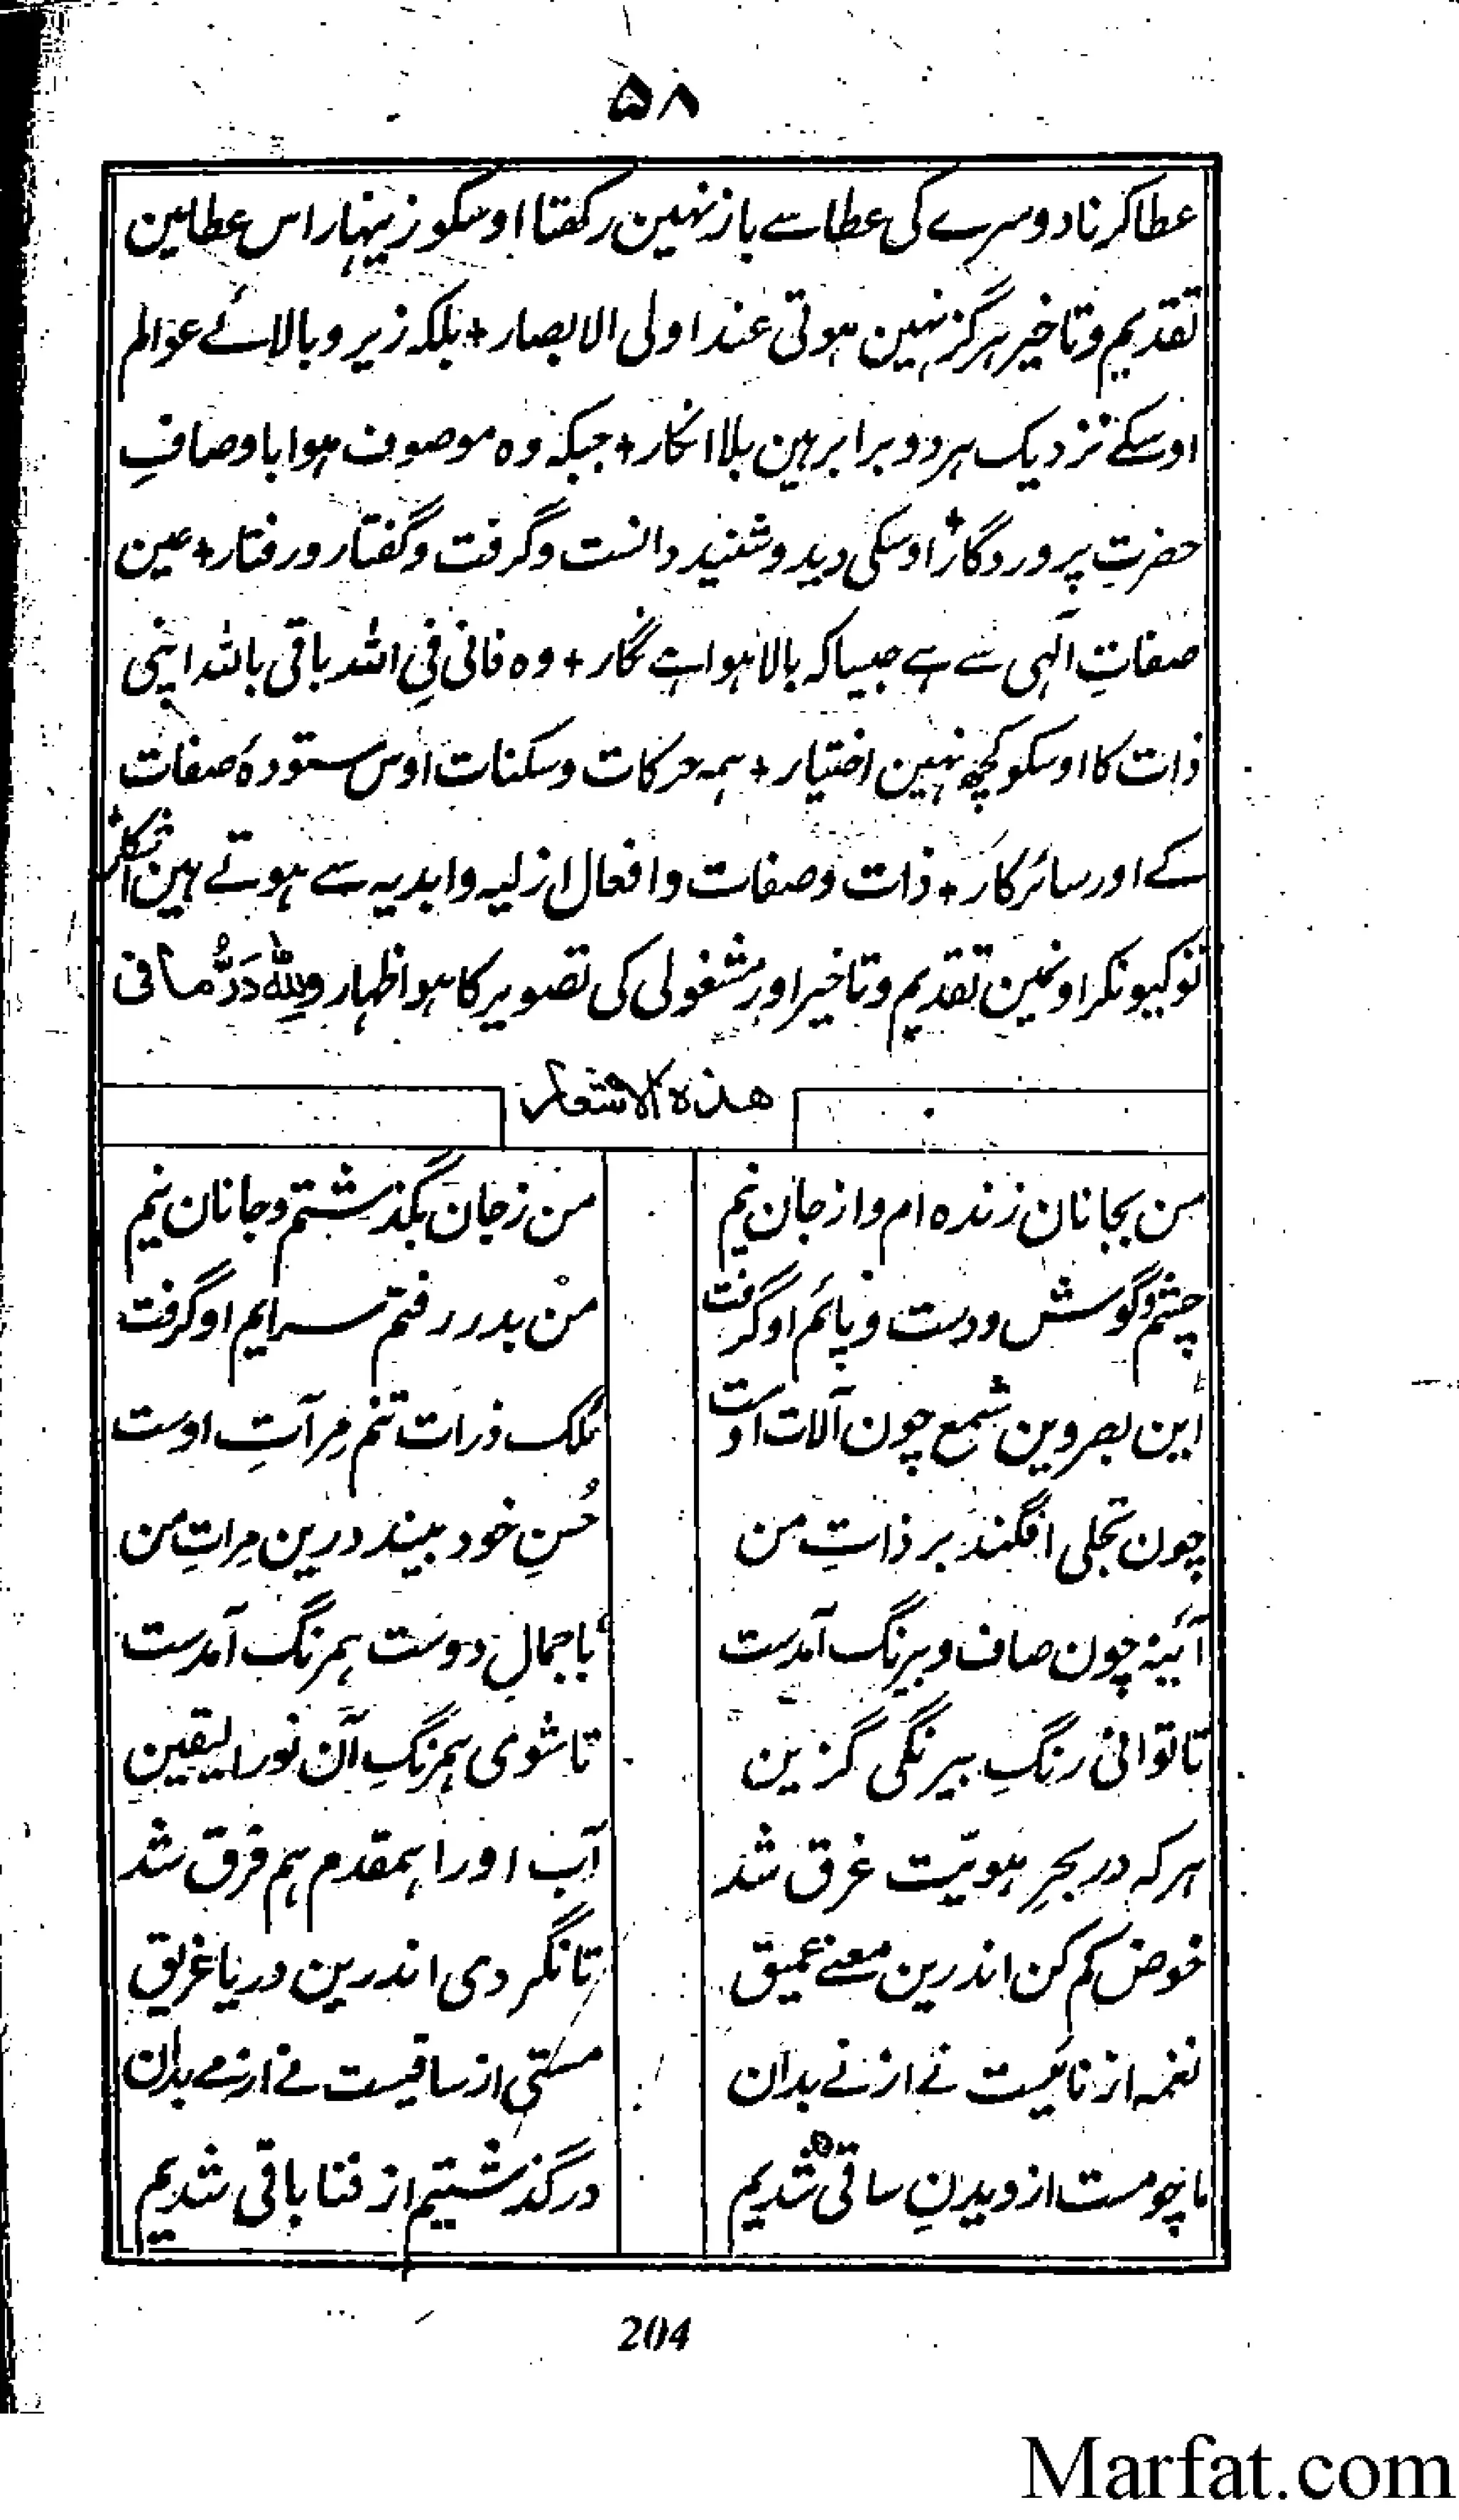 ۵۸
عطا کرنا دوسرے کی عطا سے باز نہین رکھتا اوسکو زینہار اس عطا مین
تقدیم و تاخیر ہرگز نہین ہوتی عند اولی الابصار + بلکہ زیر و بالائے عوالم
اوسکے نزدیک ہر دو برابر ہین بلا انکار + جبکہ وہ موصوف ہوا باوصافِ
حضرتِ پروردگار + اوسکی دید و شنید دانست و گرفت و گفتار و رفتار + عین
صفاتِ آلہی سے ہے جیسا کہ بالا ہوا ہے نگار + وہ فانی فی اللہ باقی باللہ اپنی
ذات کا اوسکو کچھ نہین اختیار + ہمہ حرکات و سکنات اوس ستودہ صفات
کے اور سائر کار + ذات و صفات و افعال ازلیہ و ابدیہ سے ہوتے ہین آشکار +
تو کیونکر اونمین تقدیم و تاخیر اور مشغولی کی تصویر کا ہو اظہار وللہ دَرُّ ما فی
ھذہ الاشعار
من بجانان زندہ ام و از جان نیم من ز جان بگذشتم و جانان نیم
چشم و گوش و دست و پائم او گرفت من بدر رفتم سرایم او گرفت
این بصر وین سمع چون آلات اوست بلک ذرات تنم مرآتِ اوست
چون تجلی افگند بر ذاتِ من حُسنِ خود بیند درین مراتِ من
آئینہ چون صاف و بیرنگ آمدست با جمالِ دوست ہمرنگ آمدست
تا توانی رنگِ بیرنگی گزین تا شوی ہمرنگِ آن نور الیقین
ہر کہ در بحرِ ہویّت غرق شد آب او را ہمقدم ہم فرق شد
خوض کم کن اندرین معنے عمیق تا نگردی اندرین دریا غریق
نغمہ از نائیست نے از نے بدان مستی از ساقیست نے از مے بدان
ما چو مست از دیدنِ ساقی شدیم در گذشتیم از فنا باقی شدیم
204
Marfat.com